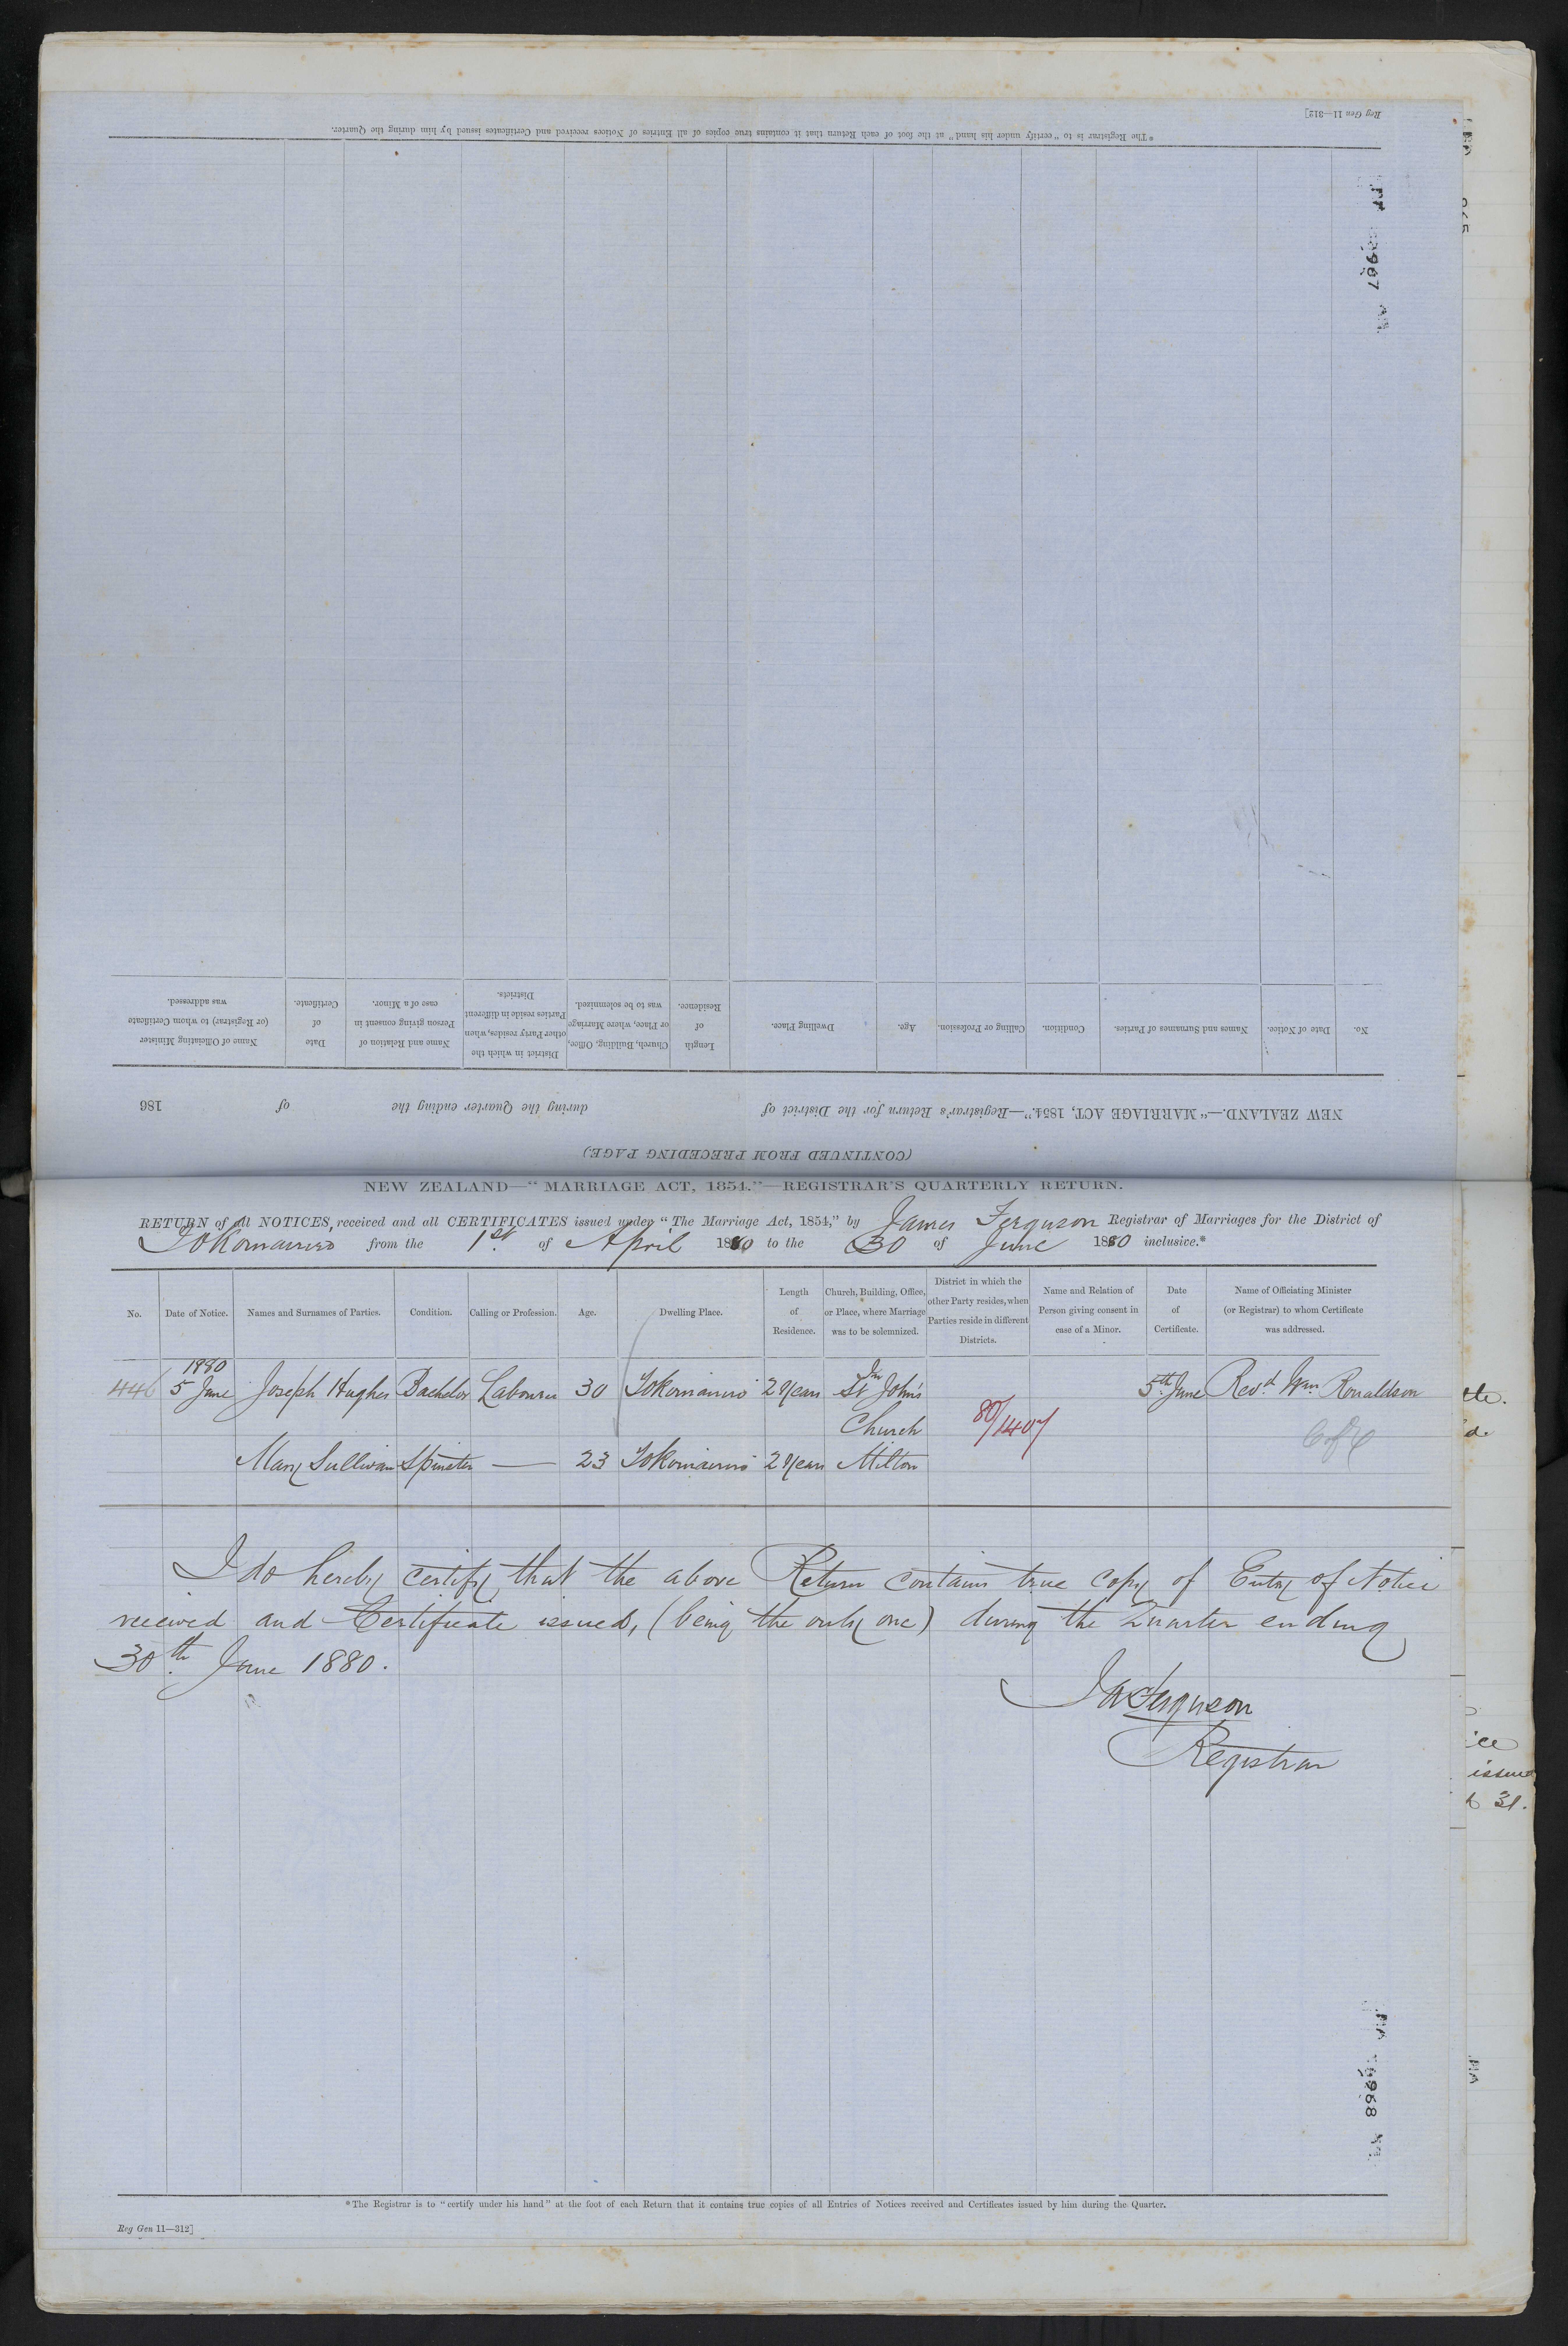 *The Registrar is to "certify under his hand" at the foot of each Return that it contains true copies of all Entries of Notices received and Certificates issued by him during the Quarter.
Reg Gen 11—312]
No.
Date of Notice.
Names and Surnames of Parties.
Condition.
Calling or Profession.
Age.
Dwelling Place.
Length of Residence.
Church, Building, Office, or Place, where Marriage was to be solemnized.
District in which the other Party resides, when Parties reside in different Districts.
Name and Relation of Person giving consent in case of a Minor.
Date of Certificate.
Name of Officiating Minister (or Registrar) to whom Certificate was addressed.
NEW ZEALAND.—"MARRIAGE ACT, 1854."—Registrar's Return for the District of during the Quarter ending the of 186
(CONTINUED FROM PRECEDING PAGE)
NEW ZEALAND—"MARRIAGE ACT, 1854."—REGISTRAR'S QUARTERLY RETURN.
RETURN of all NOTICES, received and all CERTIFICATES issued under "The Marriage Act, 1854," by James Ferguson Registrar of Marriages for the District of
Tokomairiro from the 1st of April 1880 to the 30 of June 1880 inclusive.*
No.
Date of Notice.
Names and Surnames of Parties.
Condition.
Calling or Profession.
Age.
Dwelling Place.
Length
of
Residence.
Church, Building, Office,
or Place, where Marriage
was to be solemnized.
District in which the
other Party resides, when
Parties reside in different
Districts.
Name and Relation of
Person giving consent in
case of a Minor.
Date
of
Certificate.
Name of Officiating Minister
(or Registrar) to whom Certificate
was addressed.
1880
446 5 June Joseph Hughes Bachelor Labourer 30 Tokomairiro 2 Years In St John's 5th June Revd Wm Ronaldson
Church 80/1407 C of E
Mary Sullivan Spinster — 23 Tokomairiro 2 Years Milton
I do hereby certify, that the above Return contains true copy of Entry of Notice
received and Certificate issued, (being the only one) during the Quarter ending
30th June 1880.
Jas Ferguson
Registrar
*The Registrar is to "certify under his hand" at the foot of each Return that it contains true copies of all Entries of Notices received and Certificates issued by him during the Quarter.
Reg Gen 11—312]